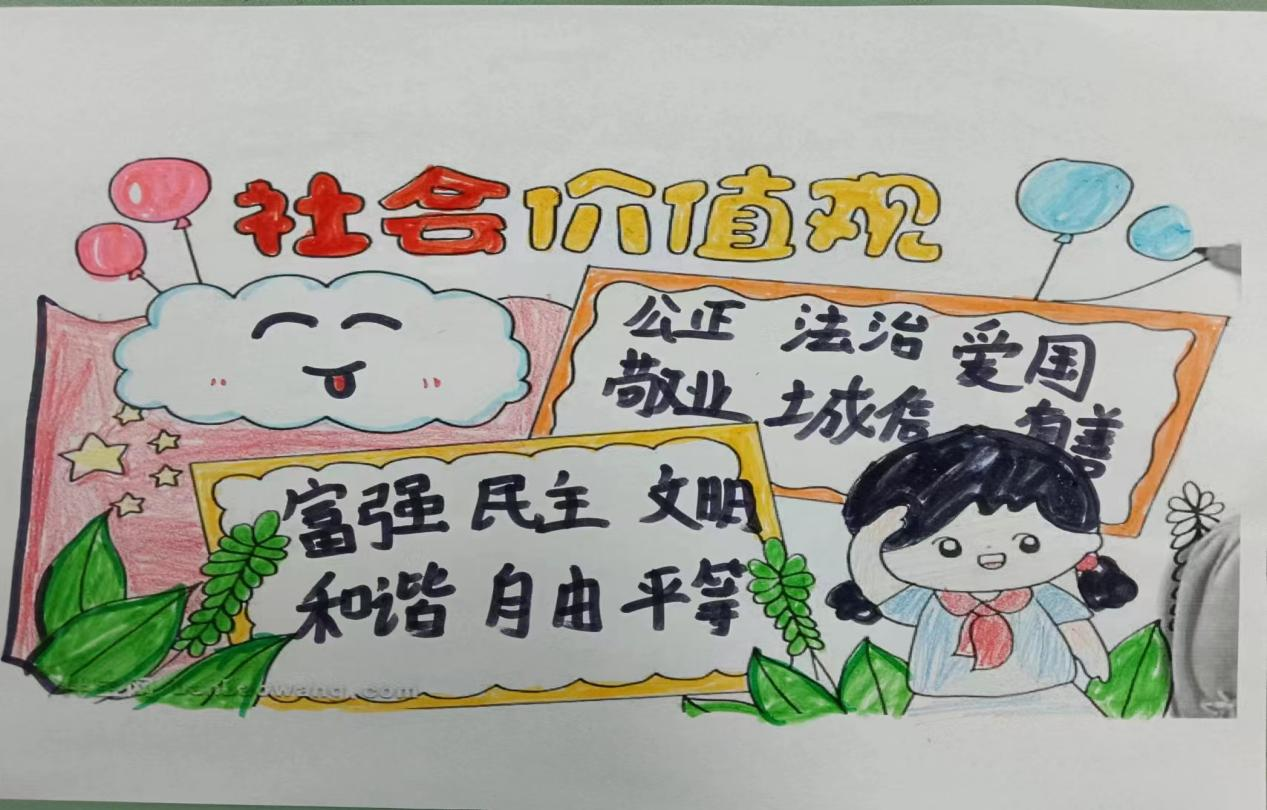 社会价值观
公正 法治 爱国
敬业 城信 有善
富强 民主 文明
和谐 自由 平等